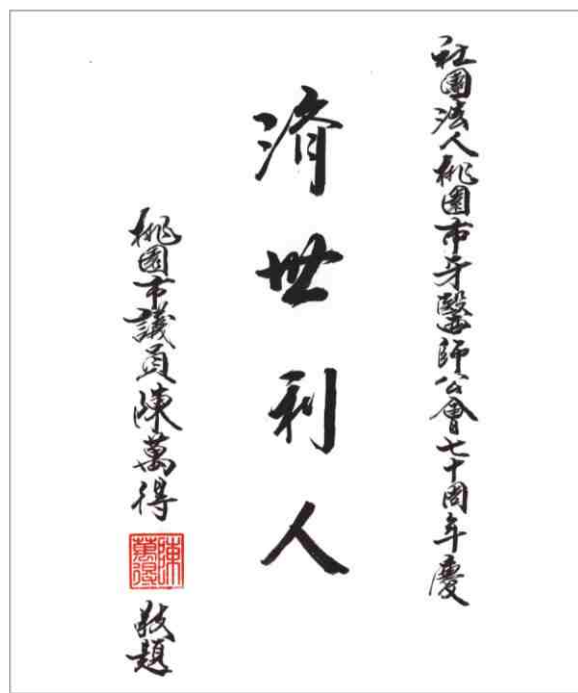 社團法人桃園市牙醫師公會七十周年慶
濟世利人
桃園市議員陳萬得
陳萬得
敬題